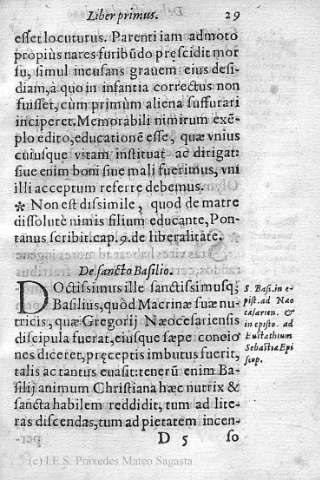 Liber primus. 29
esset locuturus. Parenti iam admoto
propiùs nares furibūdo præscidit mor
su, simul incusans grauem eius desi-
diam, à quo in infantia correctus non
fuisset, cùm primùm aliena suffurari
inciperet. Memorabili nimirum exē-
plo edito, educationē esse, quæ vnius
cuiusque vitam instituat ac dirigat:
siue enim boni siue mali fuerimus, vni
illi acceptum referre debemus.
* Non est dissimile, quod de matre
dissolutè nimis filium educante, Pon-
tanus scribit. cap. 9. de liberalitate.
De sancto Basilio.
DOctissimus ille sanctissimusq;
Basilius, quòd Macrinæ suæ nu-
tricis, quæ Gregorij Næocesariensis
discipula fuerat, eiusque sæpe concio
nes diceret, præceptis imbutus fuerit,
talis ac tantus euasit: tenerū enim Ba-
silij animum Christiana hæc nutrix &
sancta habilem reddidit, tum ad lite-
ras discendas, tum ad pietatem incen-
D 5 so
S. Basi. in e-
pist. ad Neo
cæsarien. &
in episto. ad
Eustathium
Sebastiæ Epi
scop.
(c) I.E.S. Práxedes Mateo Sagasta